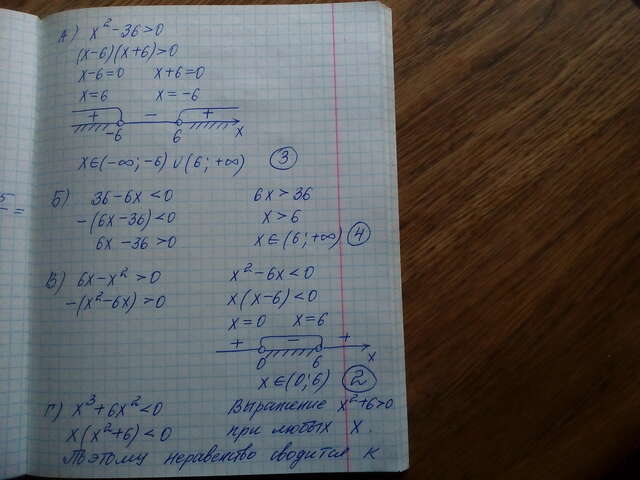 А) x² - 36 > 0
(x-6)(x+6) > 0
x-6=0 x+6=0
x=6 x=-6
+ - +
-6 6 x
x∈(-∞; -6) ∪ (6; +∞) 3
Б) 36-6x < 0 6x > 36
-(6x-36) < 0 x > 6
6x-36 > 0 x∈(6; +∞) 4
В) 6x-x² > 0 x²-6x < 0
-(x²-6x) > 0 x(x-6) < 0
x=0 x=6
+ - +
0 6 x
x∈(0; 6) 2
Г) x³+6x² < 0 Выражение x²+6>0
x(x²+6) < 0 при любых x.
Поэтому неравенство сводится к
5
=